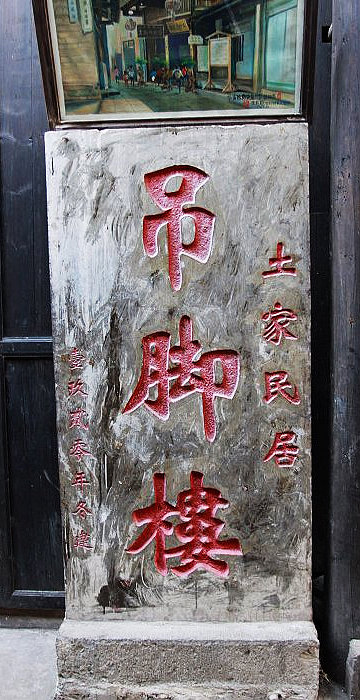 土家民居
吊脚樓
壹玖贰零年冬建